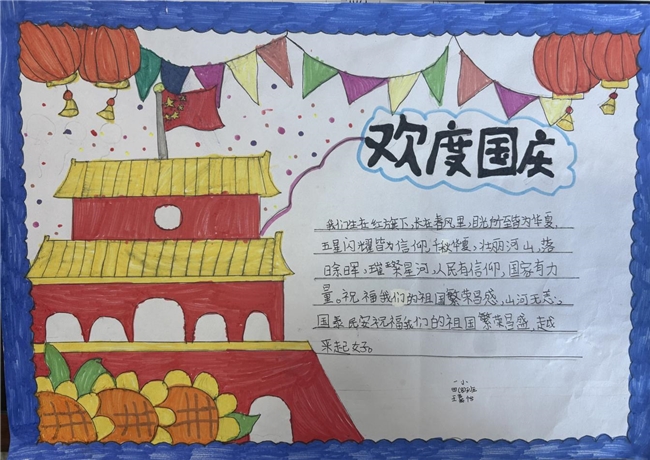 欢度国庆
我们生在红旗下,长在春风里,目光所至皆为华夏,
五星闪耀皆为信仰,千秋华夏,壮丽河山,落
日余晖,璀璨星河,人民有信仰,国家有力
量。祝福我们的祖国繁荣昌盛,山河无恙,
国泰民安祝福我们的祖国繁荣昌盛,越
来越好。
一小